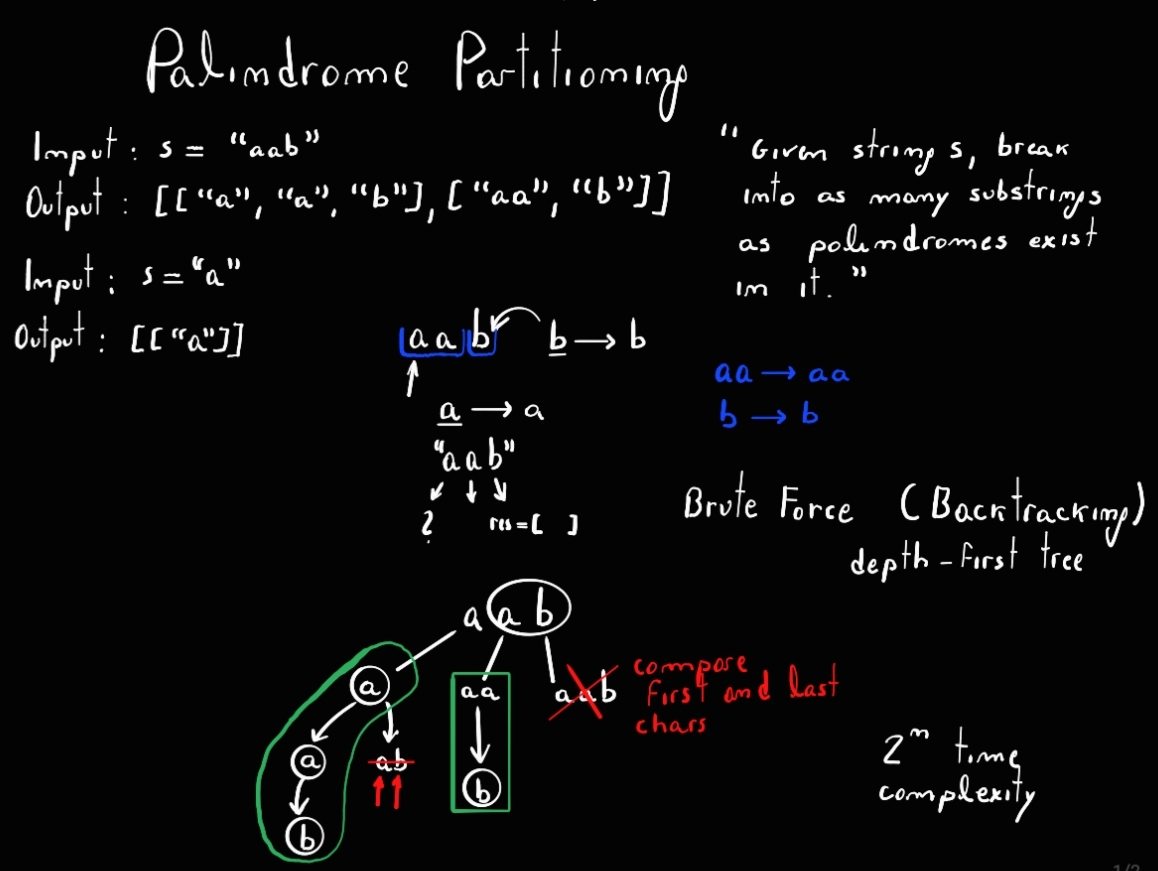 Palindrome Partitioning
Input: s = "aab"
Output: [["a", "a", "b"], ["aa", "b"]]
Input: s = "a"
Output: [["a"]]
"Given string s, break
into as many substrings
as palindromes exist
in it."
aab
b → b
a → a
"aab"
?
res = [ ]
aa → aa
b → b
Brute Force (Backtracking)
depth-first tree
a a b
a
aa
aab
compare
first and last
chars
a
ab
b
b
2^n time
complexity